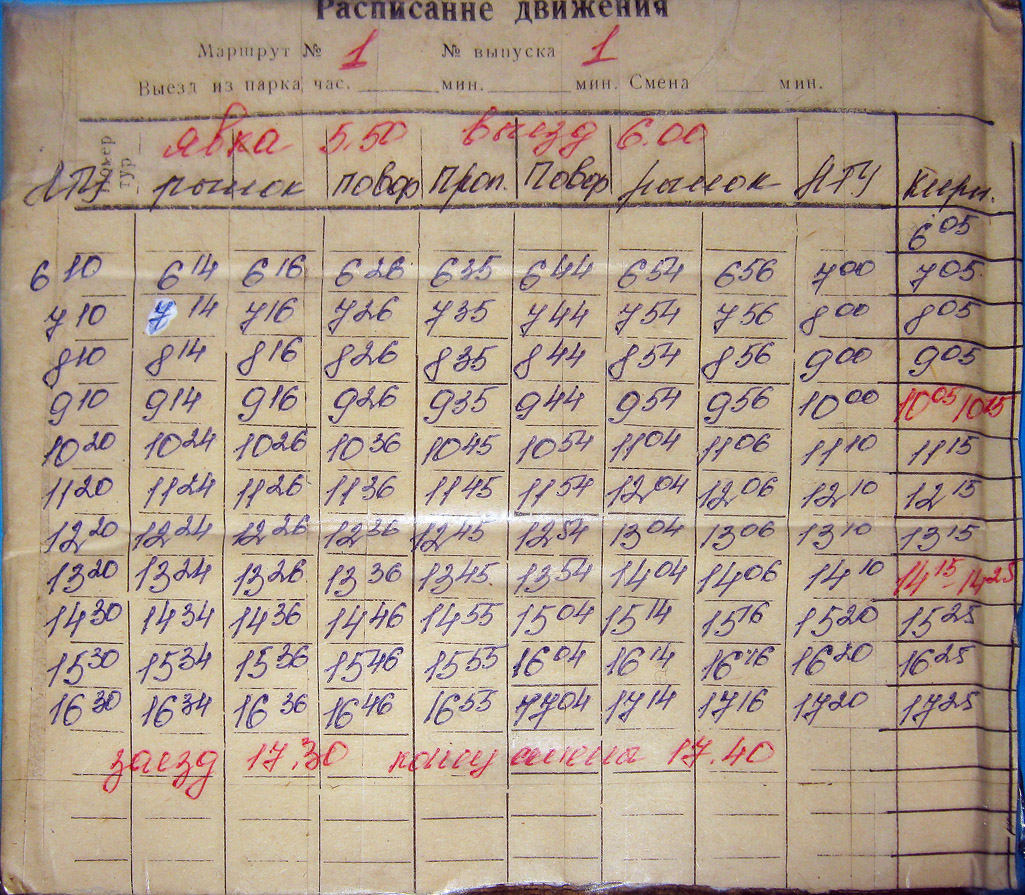 Расписание движения
Маршрут № 1 № выпуска 1
Выезд из парка час. мин. мин. Смена мин.
Номер тур
явка 5.50 выезд 6.00
АТУ рынок повор Проп. Повор рынок АТУ Кирп.
6 05
6 10 6 14 6 16 6 26 6 35 6 44 6 54 6 56 7 00 7 05
7 10 7 14 7 16 7 26 7 35 7 44 7 54 7 56 8 00 8 05
8 10 8 14 8 16 8 26 8 35 8 44 8 54 8 56 9 00 9 05
9 10 9 14 9 16 9 26 9 35 9 44 9 54 9 56 10 00 10 05 10 15
10 20 10 24 10 26 10 36 10 45 10 54 11 04 11 06 11 10 11 15
11 20 11 24 11 26 11 36 11 45 11 54 12 04 12 06 12 10 12 15
12 20 12 24 12 26 12 36 12 45 12 54 13 04 13 06 13 10 13 15
13 20 13 24 13 26 13 36 13 45 13 54 14 04 14 06 14 10 14 15 14 25
14 30 14 34 14 36 14 46 14 55 15 04 15 14 15 16 15 20 15 25
15 30 15 34 15 36 15 46 15 55 16 04 16 14 16 16 16 20 16 25
16 30 16 34 16 36 16 46 16 55 17 04 17 14 17 16 17 20 17 25
заезд 17.30 конец смены 17.40